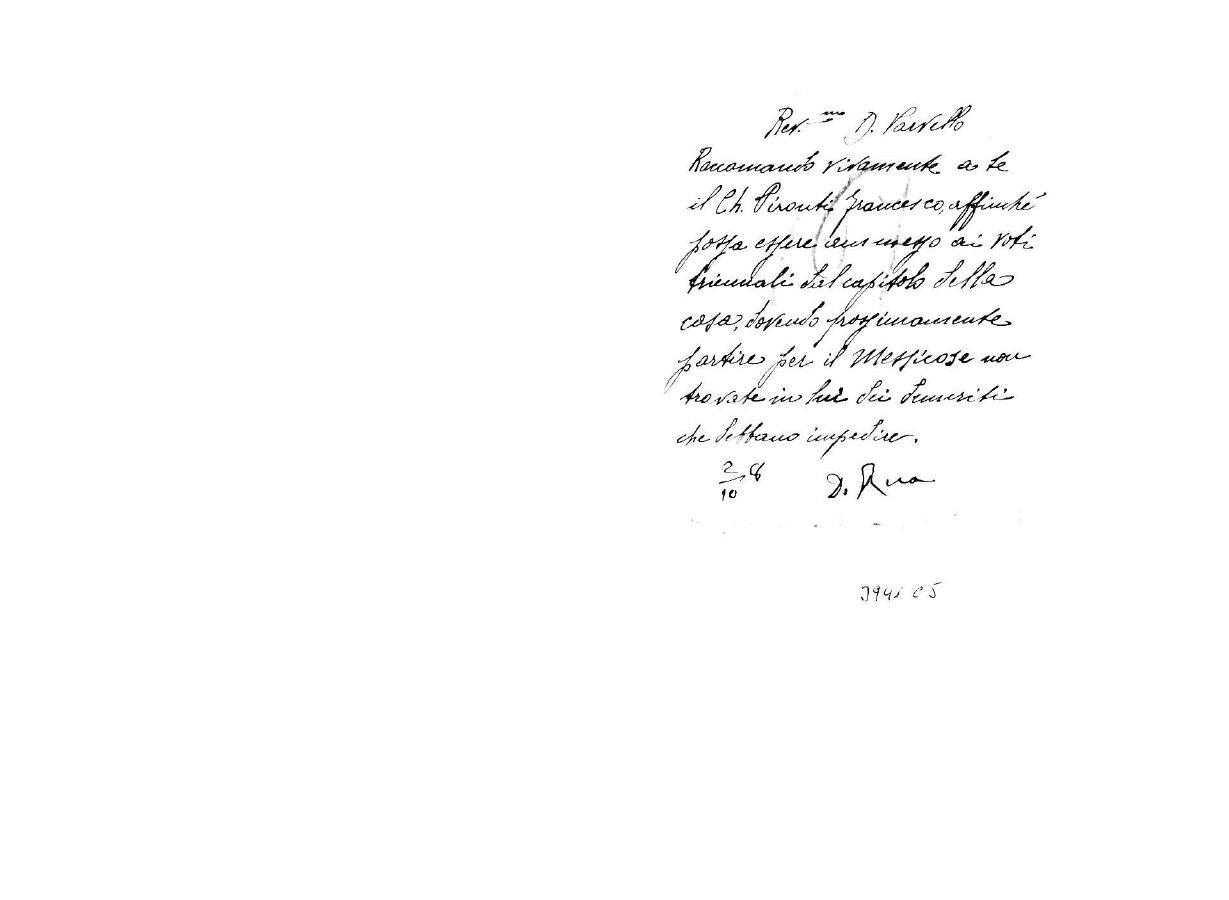 Rev.mo D. Varvello
Raccomando vivamente a te
il Ch. Pironti Francesco, affinché
possa essere ammesso ai voti
triennali dal capitolo della
casa, dovendo prossimamente
partire per il Messico se non
trovate in lui dei demeriti
che debbano impedire.
2/10 8 D. Rua
3941 C 5